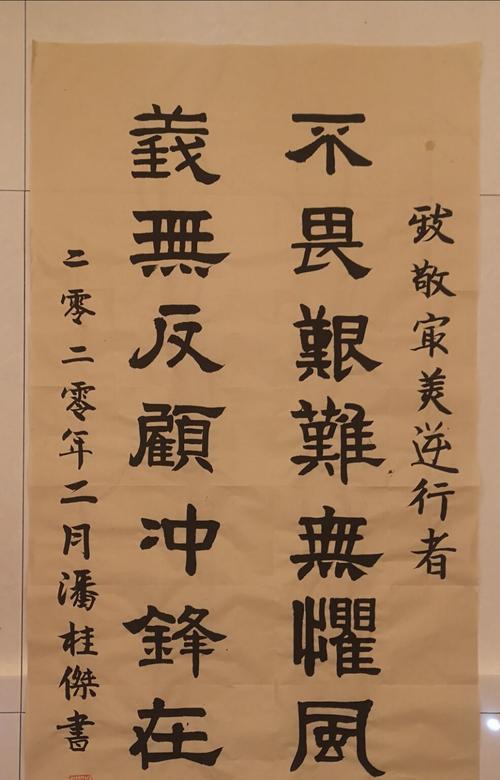 致敬㝡美逆行者
不畏艱難無懼風
義無反顧冲鋒在
二零二零年二月潘桂傑書